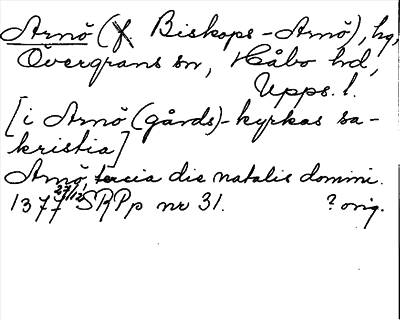 Arnö (f. Biskops-Arnö), hg,
Övergrans sn, Håbo hd,
Upps. l.
[i Arnö (gårds)-kyrkas sa-
kristia]
Arnö tercia die natalis domini.
1377 27/12 SRPp nr 31. ? orig.